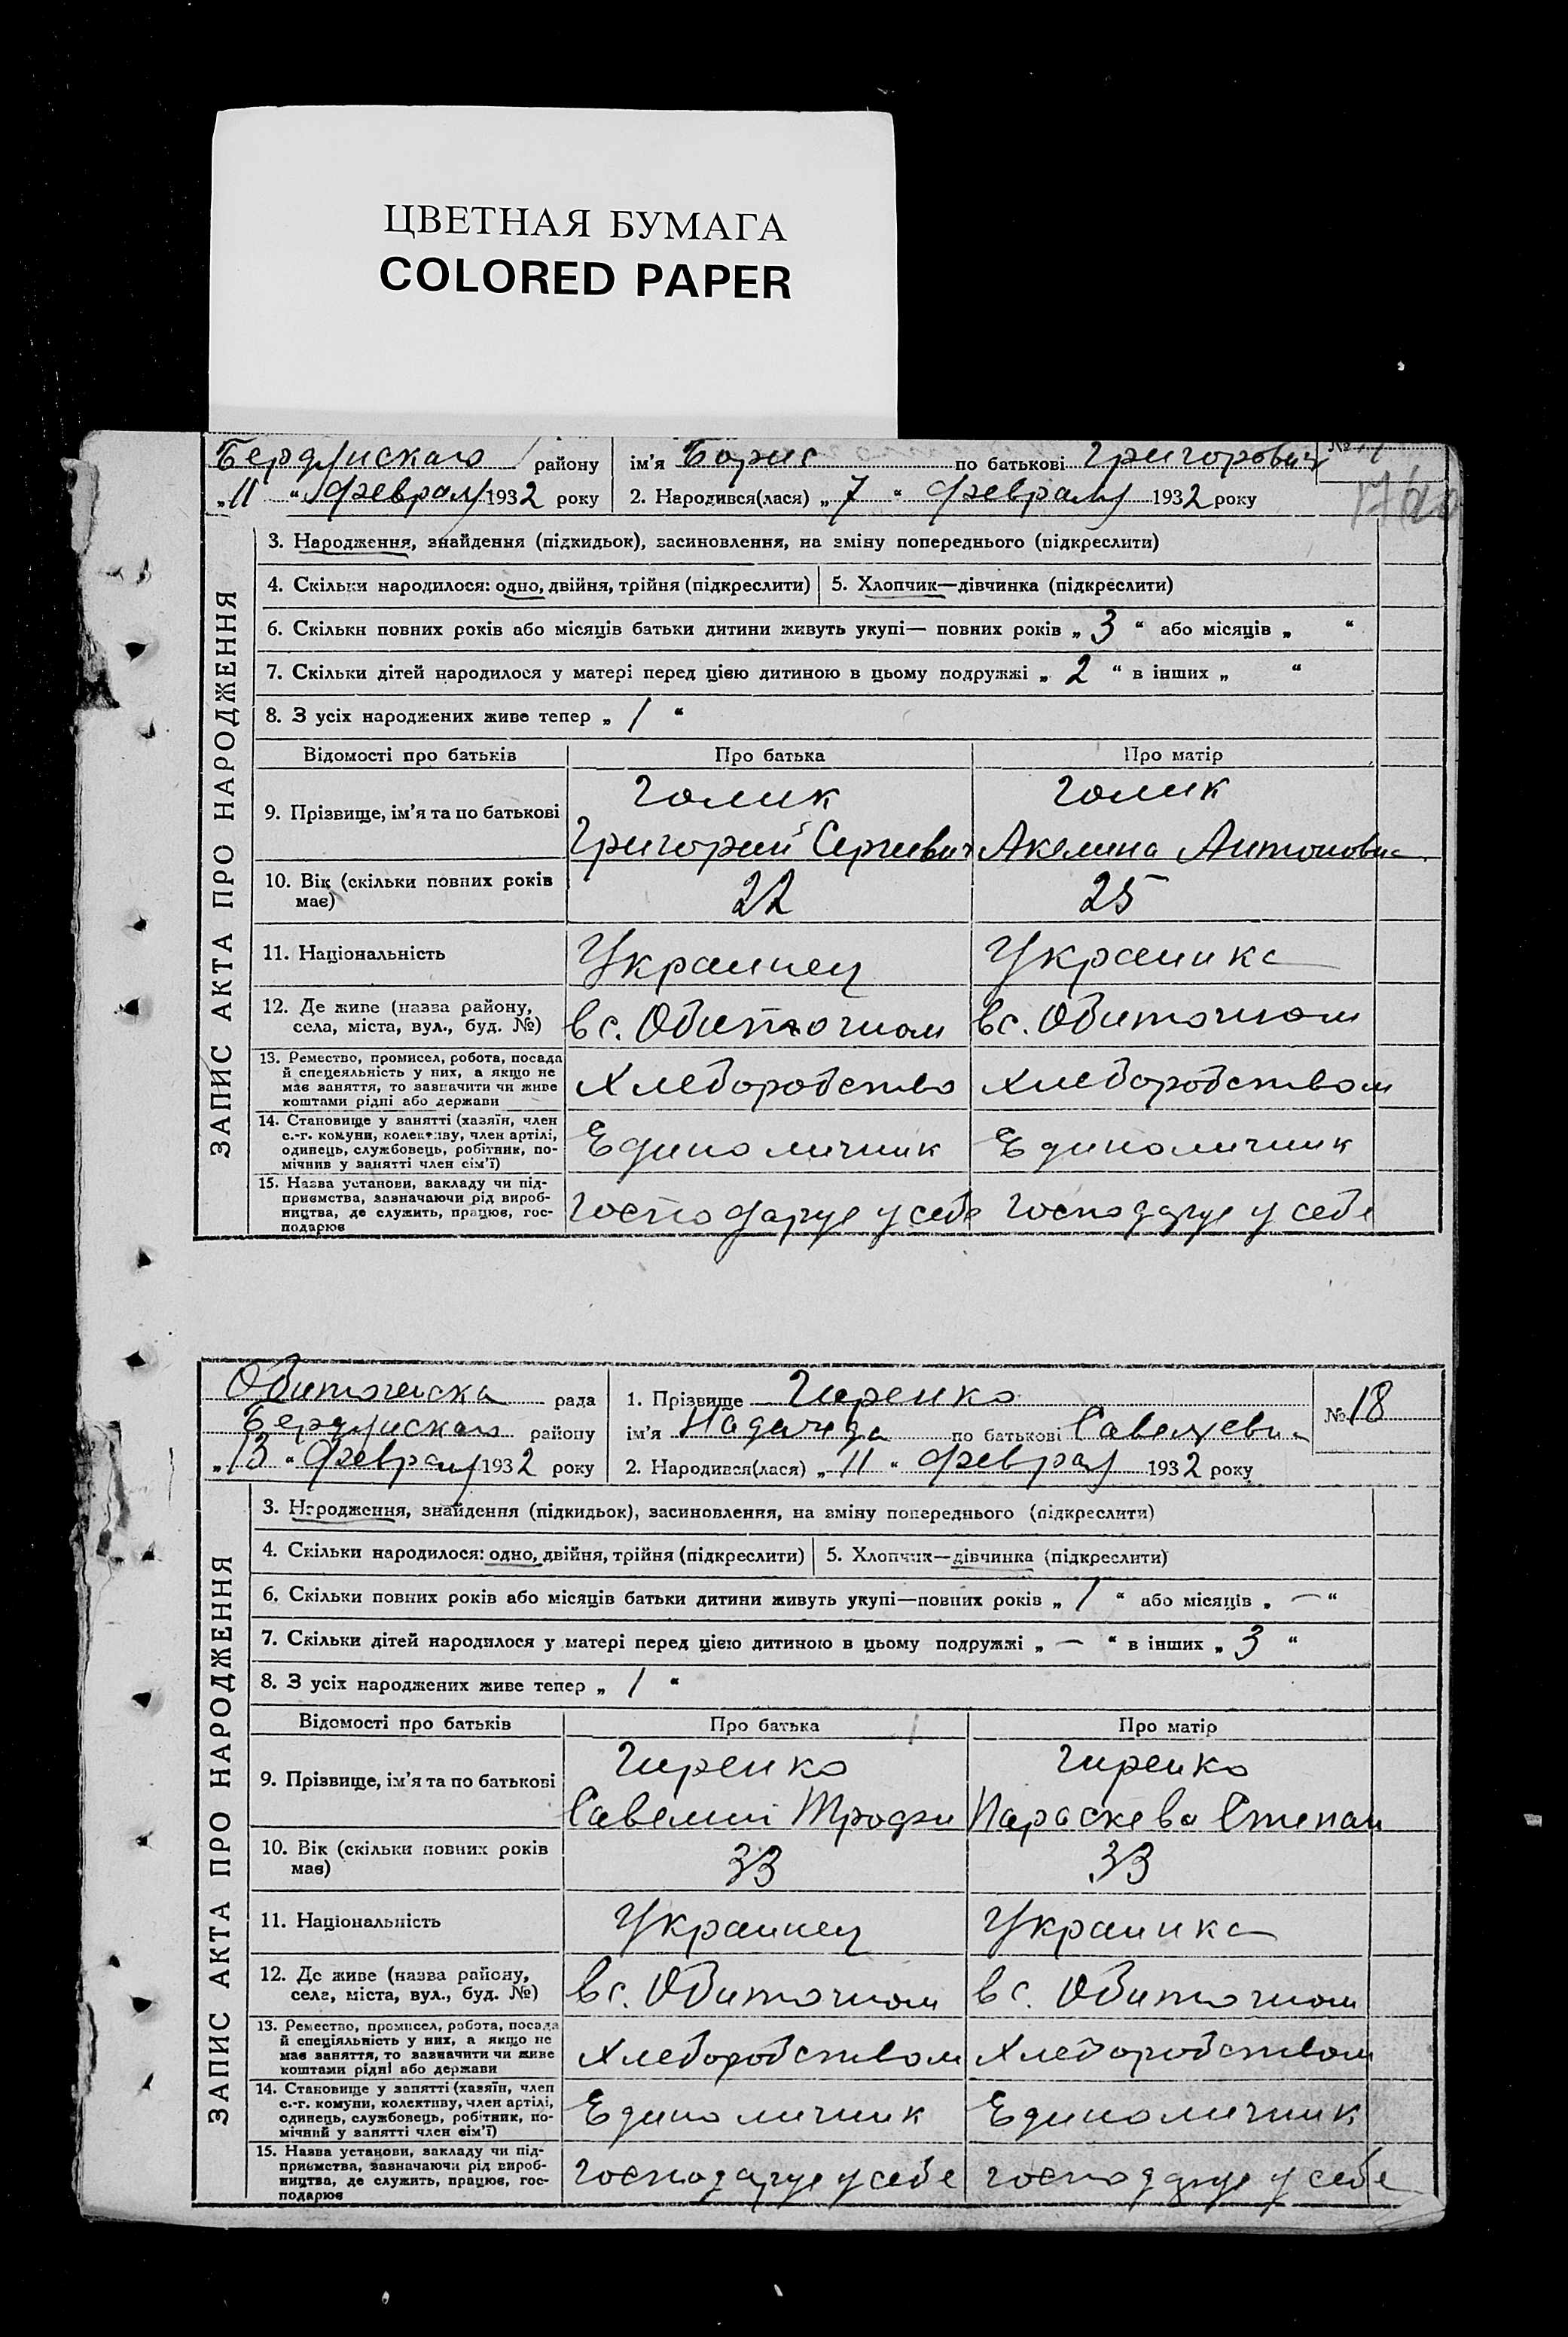 ЦВЕТНАЯ БУМАГА
COLORED PAPER
району ім'я Борис по батькові Григорович №
„11“ февраля 1932 року 2. Народився(лася) „7“ февраля 1932 року
ЗАПИС АКТА ПРО НАРОДЖЕННЯ
3. Народження, знайдення (підкидьок), засиновлення, на зміну попереднього (підкреслити)
4. Скільки народилося: одно, двійня, трійня (підкреслити) 5. Хлопчик—дівчинка (підкреслити)
6. Скільки повних років або місяців батьки дитини живуть укупі— повних років „3“ або місяців „ “
7. Скільки дітей народилося у матері перед цією дитиною в цьому подружжі „2“ в інших „ “
8. З усіх народжених живе тепер „1“
Відомості про батьків Про батька Про матір
Голик Голик
9. Прізвище, ім'я та по батькові
Григорий Сергиевич Акелина Антоновна
10. Вік (скільки повних років 22 25
має)
11. Національність Украинец Украинка
12. Де живе (назва району,
села, міста, вул., буд. №) в с. Обиточном в с. Обиточном
13. Ремество, промисел, робота, посада
й спецеяльність у них, а якщо не
має заняття, то зазначити чи живе
коштами рідні або держави
Хлеборобство Хлеборобством
14. Становище у занятті (хазяїн, член
с.-г. комуни, колективу, член артілі,
одинець, службовець, робітник, по-
мічнив у занятті член сім'ї)
Единоличник Единоличник
15. Назва установи, закладу чи під-
приємства, зазначаючи рід вироб-
ництва, де служить, працює, гос-
подарює
господарує у себе господарує у себе
рада 1. Прізвище Гиренко №18
району ім'я Надежда по батькові
„13“ февраля 1932 року 2. Народився(лася) „11“ февраля 1932 року
ЗАПИС АКТА ПРО НАРОДЖЕННЯ
3. Народження, знайдення (підкидьок), засиновлення, на зміну попереднього (підкреслити)
4. Скільки народилося: одно, двійня, трійня (підкреслити) 5. Хлопчик—дівчинка (підкреслити)
6. Скільки повних років або місяців батьки дитини живуть укупі—повних років „1“ або місяців „—“
7. Скільки дітей народилося у матері перед цією дитиною в цьому подружжі „—“ в інших „3“
8. З усіх народжених живе тепер „1“
Відомості про батьків Про батька Про матір
Гиренко Гиренко
9. Прізвище, ім'я та по батькові
Савелий Трофи Параскева Степан
10. Вік (скільки повних років 33 33
має)
11. Національність Украинец Украинка
12. Де живе (назва району,
села, міста, вул., буд. №) в с. Обиточном в с. Обиточном
13. Ремество, промисел, робота, посада
й спеціяльність у них, а якщо не
має заняття, то зазначити чи живе
коштами рідні або держави
Хлеборобством Хлеборобством
14. Становище у занятті (хазяїн, член
с.-г. комуни, колективу, член артілі,
одинець, службовець, робітник, по-
мічний у занятті член сім'ї)
Единоличник Единоличник
15. Назва установи, закладу чи під-
приємства, зазначаючи рід вироб-
ництва, де служить, працює, гос-
подарює
господарує у себе господарує у себе